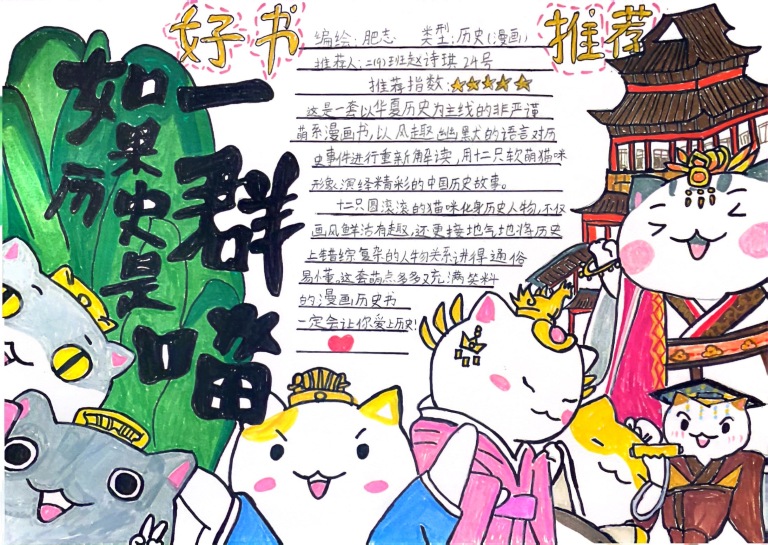 好书
推荐
如果历史是
一群喵
编绘:肥志 类型:历史(漫画)
推荐人:三(9)班赵诗琪 24号
推荐指数:★★★★★
这是一套以华夏历史为主线的非严谨
萌系漫画书,以风趣幽默的语言对历
史事件进行重新解读,用十二只软萌猫咪
形象演绎精彩的中国历史故事。
十二只圆滚滚的猫咪化身历史人物,不仅
画风鲜活有趣,还更接地气地将历史
上错综复杂的人物关系讲得通俗
易懂,这套萌点多多又充满笑料
的漫画历史书
一定会让你爱上历史!